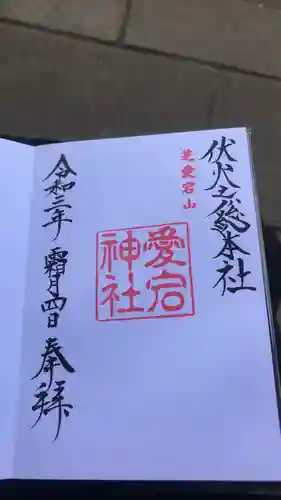 伏火之総本社
芝愛宕山
愛宕
神社
令和三年 霜月四日 奉拝